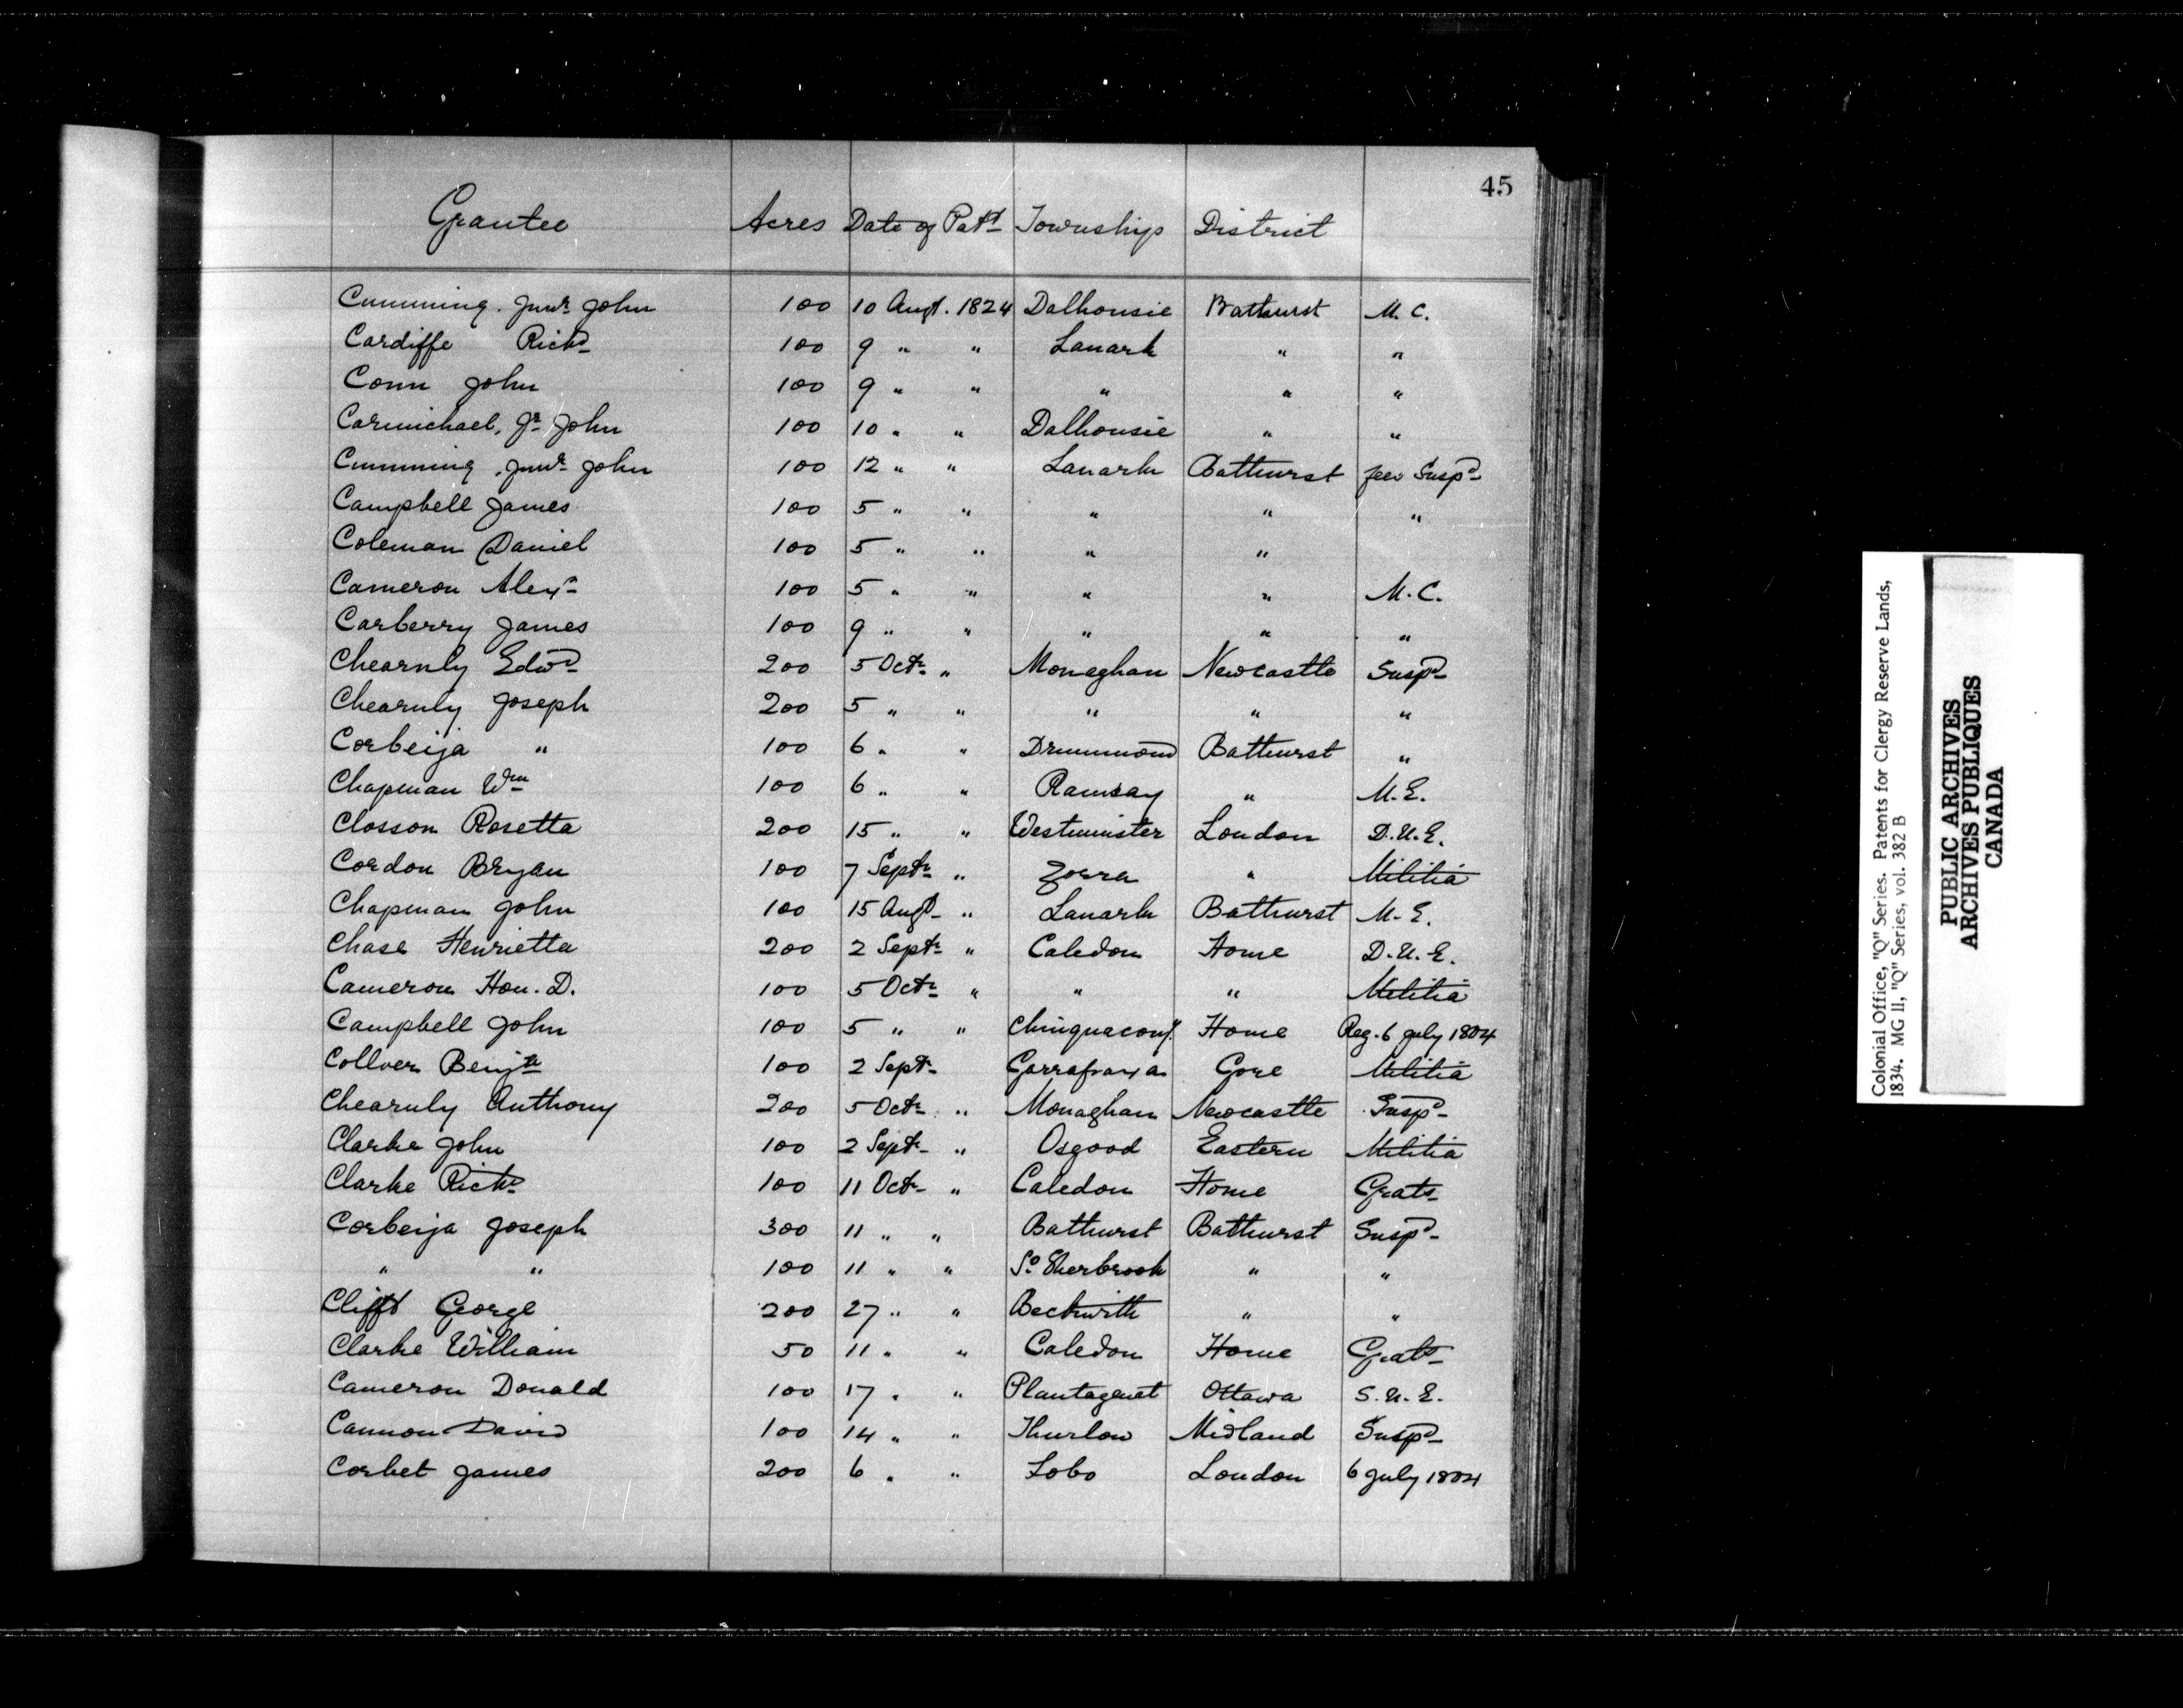 45
Grantee Acres Date of Patt Township District
Cumming. Junr John 100 10 Augt. 1824 Dalhousie Bathurst M. C.
Cardiffe Richd 100 9 " " Lanark " "
Conn John 100 9 " " " " "
Carmichael, Jr John 100 10 " " Dalhousie " "
Cumming, Junr John 100 12 " " Lanark Bathurst fees Suspd
Campbell James 100 5 " " " " "
Coleman Daniel 100 5 " " " "
Cameron Alexr 100 5 " " " " M. C.
Carberry James 100 9 " " " " "
Chearnly Edwd 200 5 Octr " Monaghan Newcastle Suspd
Chearnly Joseph 200 5 " " " " "
Corbeija " 100 6 " " Drummond Bathurst "
Chapman Wm 100 6 " " Ramsay " M. E.
Closson Rosetta 200 15 " " Westminster London D. U. E.
Cordon Bryan 100 7 Septr " Zorra " Militia
Chapman John 100 15 Augt " Lanark Bathurst M. E.
Chase Henrietta 200 2 Septr " Caledon Home D. U. E.
Cameron Hon. D. 100 5 Octr " " " Militia
Campbell John 100 5 " " Chinguacouy. Home Reg. 6 July 1804
Collver Benjn 100 2 Septr Garrafraxa Gore Militia
Chearnly Anthony 200 5 Octr " Monaghan Newcastle Suspd
Clarke John 100 2 Septr " Osgood Eastern Militia
Clarke Richd 100 11 Octr " Caledon Home Grats
Corbeija Joseph 300 11 " " Bathurst Bathurst Suspd
" " 100 11 " " So Sherbrook " "
Clifft George 200 27 " " Beckwith " "
Clarke William 50 11 " " Caledon Home Grats
Cameron Donald 100 17 " " Plantagenet Ottawa S. U. E.
Cannon David 100 14 " " Thurlow Midland Suspd
Corbet James 200 6 " " Lobo London 6 July 1804
Colonial Office, "Q" Series. Patents for Clergy Reserve Lands,
1834. MG 11, "Q" Series, vol. 382 B
PUBLIC ARCHIVES
ARCHIVES PUBLIQUES
CANADA